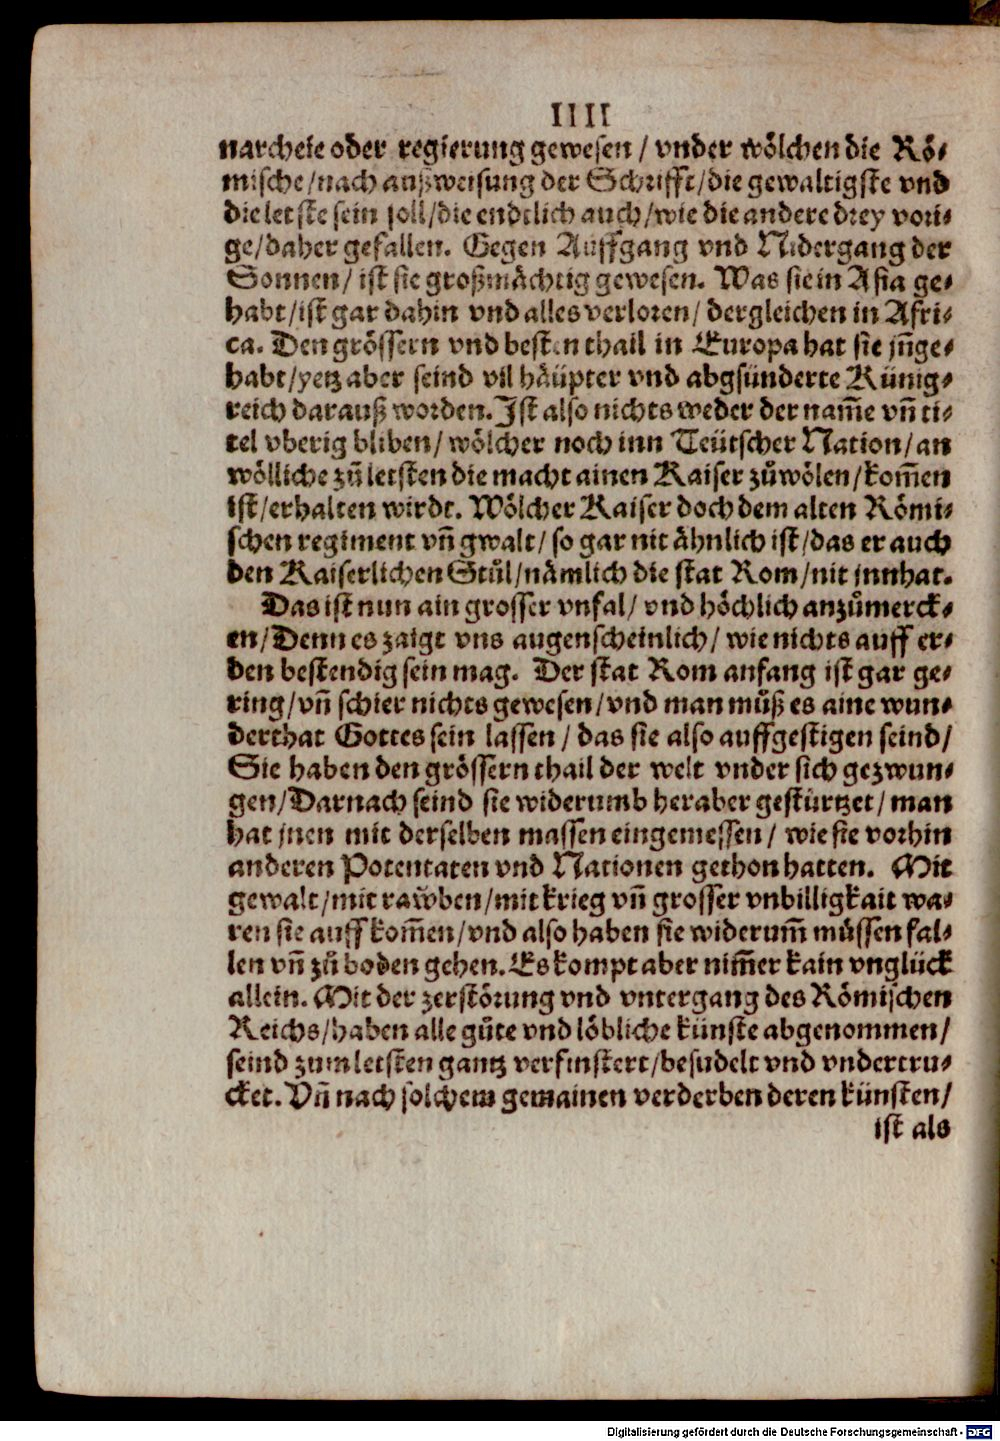 IIII
narcheie oder regierung gewesen / vnder wölchen die Rö⸗
mische/nach außweisung der Schrifft/die gewaltigste vnd
die letste sein soll/die endtlich auch/wie die andere drey vori⸗
ge/daher gefallen. Gegen Auffgang vnd Nidergang der
Sonnen/ ist sie großmächtig gewesen. Was sie in Asia ge⸗
habt/ist gar dahin vnd alles verloren/ dergleichen in Afri⸗
ca. Den grössern vnd besten thail in Europa hat sie jn̄ge⸗
habt/yetz aber seind vil häüpter vnd abgsünderte Künig⸗
reich darauß worden. Ist also nichts weder der nam̄e vn̄ ti⸗
tel vberig bliben/ wölcher noch inn Teütscher Nation/ an
wölliche zů letsten die macht ainen Kaiser zůwölen/kom̄en
ist/erhalten wirdt. Wölcher Kaiser doch dem alten Römi⸗
schen regiment vn̄ gwalt/ so gar nit ähnlich ist/das er auch
den Kaiserlichen Stůl/nämlich die stat Rom/nit jnnhat.
Das ist nun ain grosser vnfal/ vnd höchlich anzůmerck⸗
en/Denn es zaigt vns augenscheinlich/ wie nichts auff er⸗
den bestendig sein mag. Der stat Rom anfang ist gar ge⸗
ring/vn̄ schier nichts gewesen/vnd man můß es aine wun⸗
derthat Gottes sein lassen / das sie also auffgestigen seind/
Sie haben den grössern thail der welt vnder sich gezwun⸗
gen/Darnach seind sie widerumb heraber gestürtzet/ man
hat jnen mit derselben massen eingemessen/ wie sie vorhin
anderen Potentaten vnd Nationen gethon hatten. Mit
gewalt/mit rawben/mit krieg vn̄ grosser vnbilligkait wa⸗
ren sie auffkom̄en/vnd also haben sie widerum̄ müssen fal⸗
len vn̄ zů boden gehen. Es kompt aber nim̄er kain vnglück
allein. Mit der zerstörung vnd vntergang des Römischen
Reichs/haben alle gůte vnd löbliche künste abgenommen/
seind zum letsten gantz verfinstert/besudelt vnd vndertru⸗
cket. Vn̄ nach solchem gemainen verderben deren künsten/
ist als
Digitalisierung gefördert durch die Deutsche Forschungsgemeinschaft - DFG